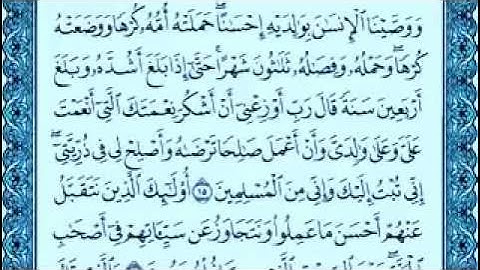 وَوَصَّيْنَا ٱلْإِنسَٰنَ بِوَٰلِدَيْهِ إِحْسَٰنًا ۖ حَمَلَتْهُ أُمُّهُۥ كُرْهًا وَوَضَعَتْهُ
كُرْهًا ۖ وَحَمْلُهُۥ وَفِصَٰلُهُۥ ثَلَٰثُونَ شَهْرًا ۚ حَتَّىٰٓ إِذَا بَلَغَ أَشُدَّهُۥ وَبَلَغَ
أَرْبَعِينَ سَنَةً قَالَ رَبِّ أَوْزِعْنِىٓ أَنْ أَشْكُرَ نِعْمَتَكَ ٱلَّتِىٓ أَنْعَمْتَ
عَلَىَّ وَعَلَىٰ وَٰلِدَىَّ وَأَنْ أَعْمَلَ صَٰلِحًا تَرْضَىٰهُ وَأَصْلِحْ لِى فِى ذُرِّيَّتِىٓ ۖ
إِنِّى تُبْتُ إِلَيْكَ وَإِنِّى مِنَ ٱلْمُسْلِمِينَ ١٥ أُو۟لَٰٓئِكَ ٱلَّذِينَ نَتَقَبَّلُ
عَنْهُمْ أَحْسَنَ مَا عَمِلُوا۟ وَنَتَجَاوَزُ عَن سَيِّـَٔاتِهِمْ فِىٓ أَصْحَٰبِ